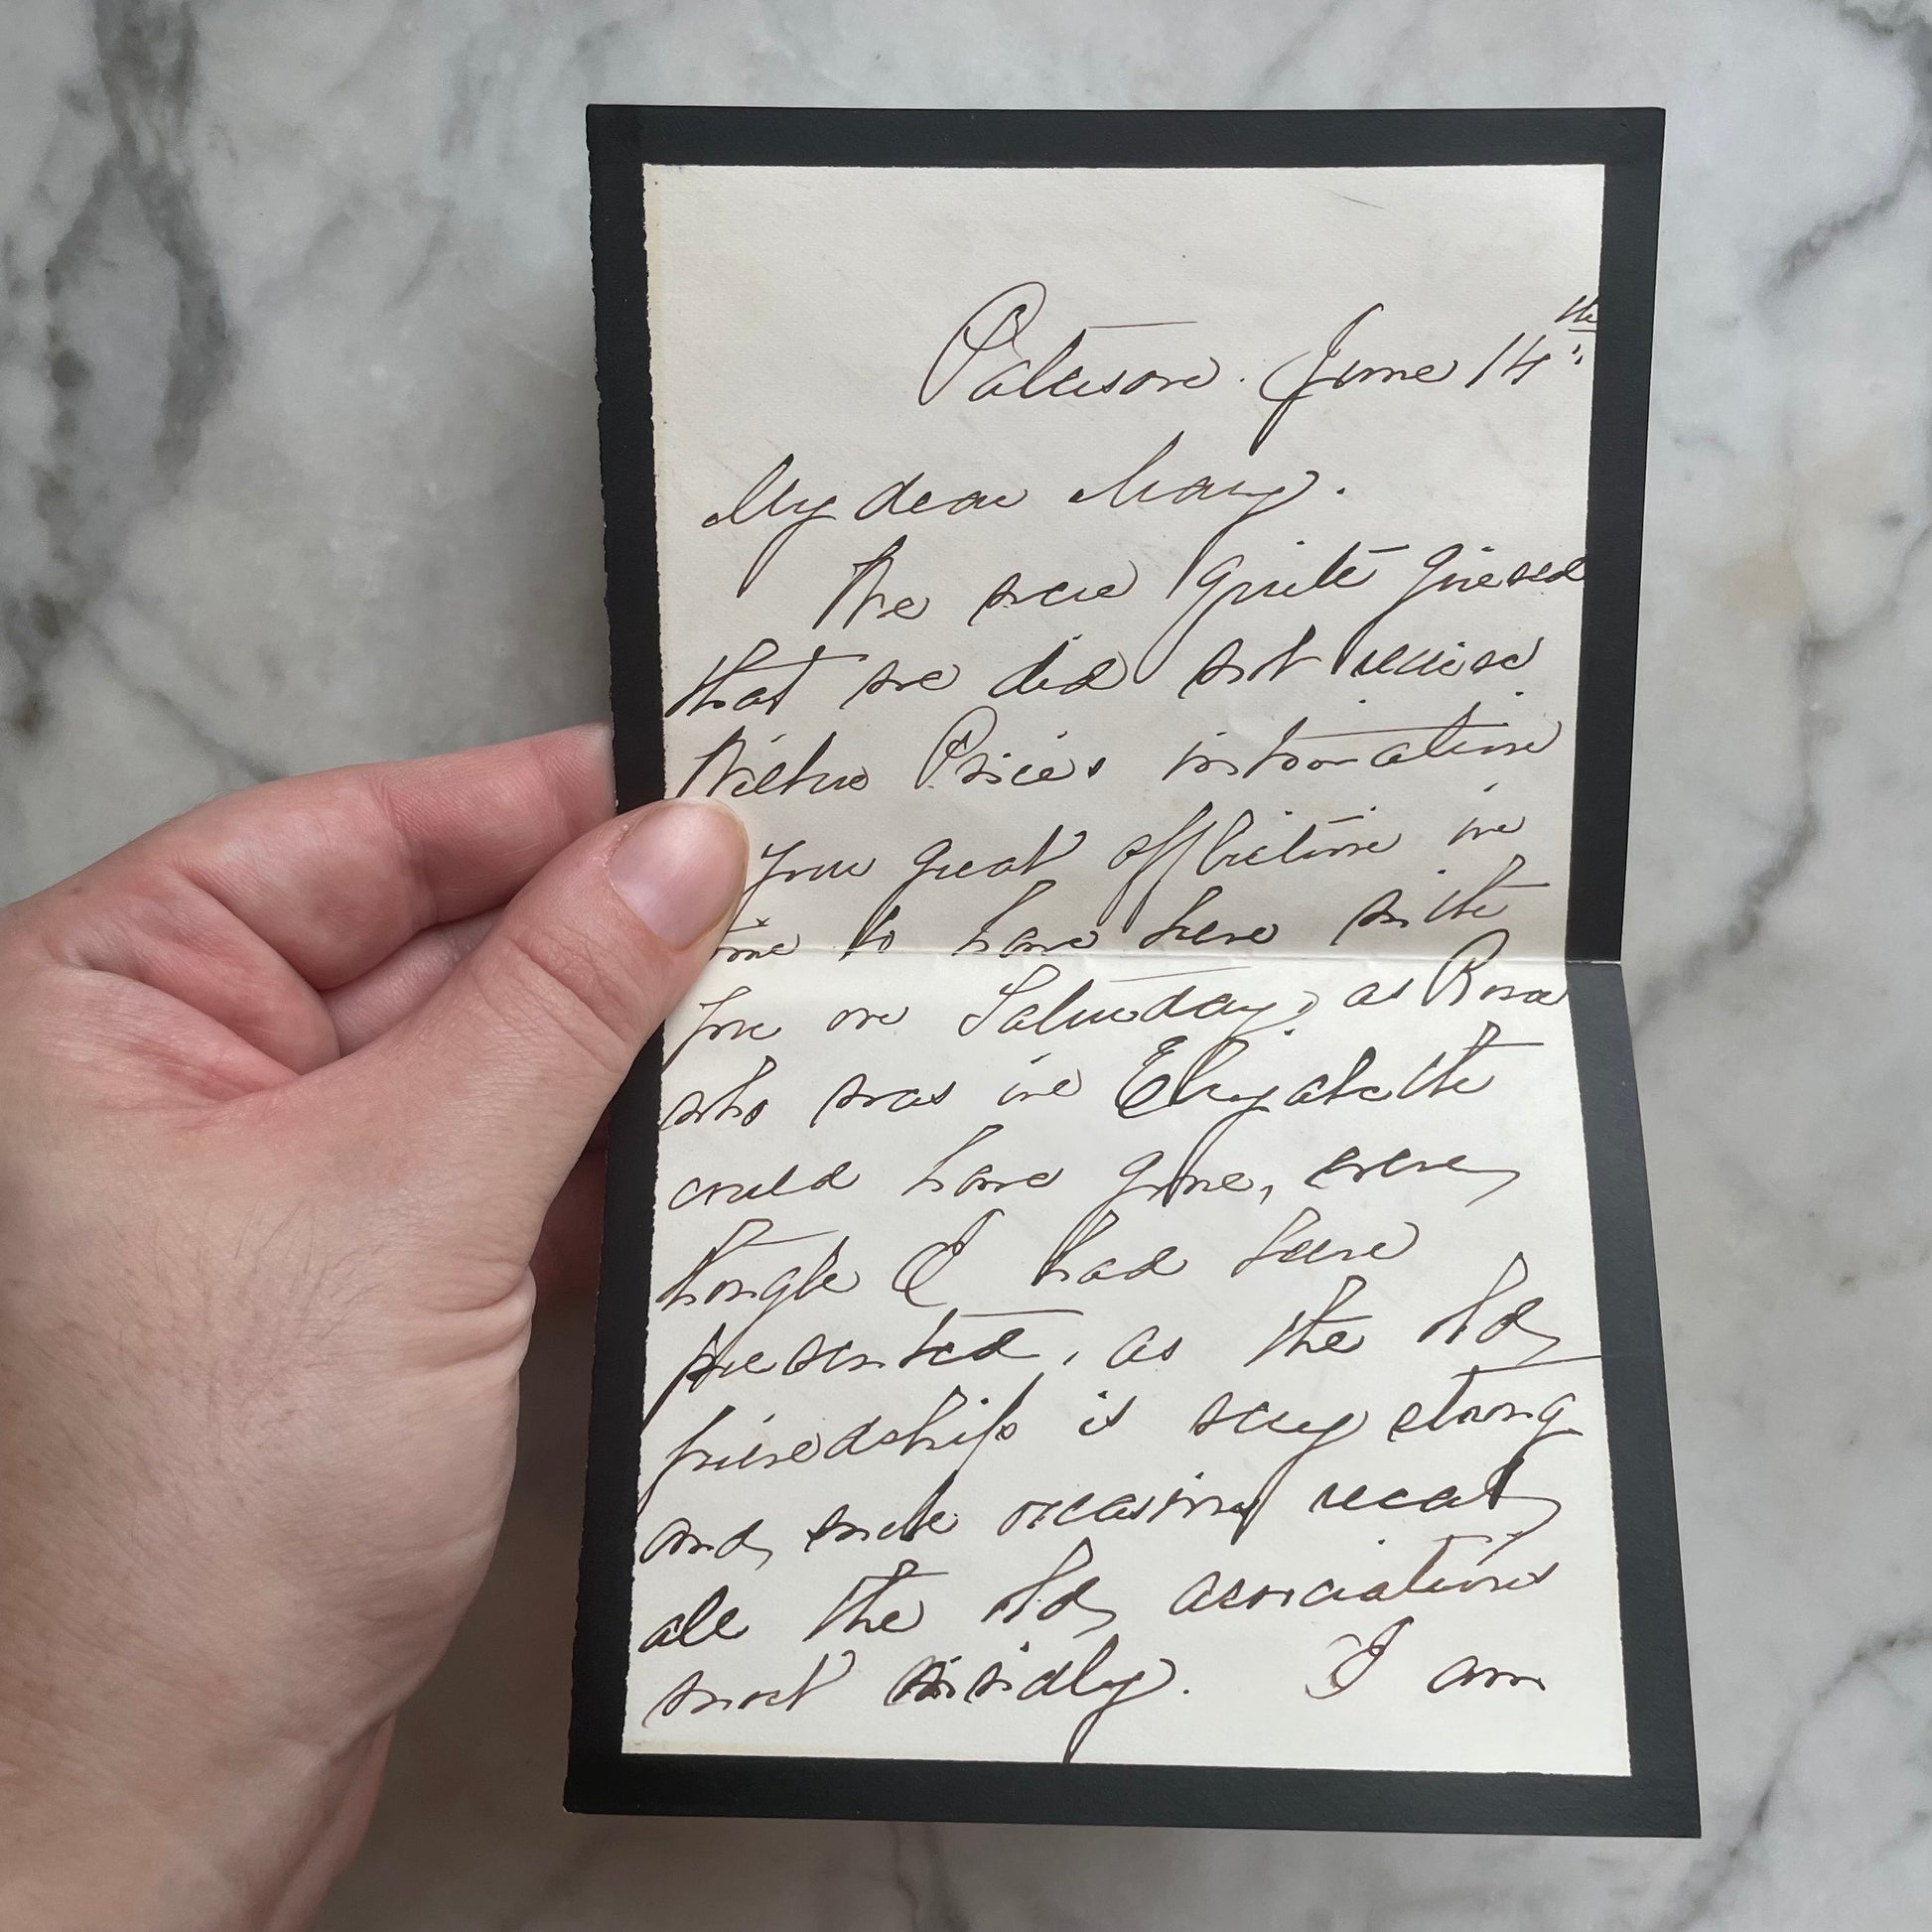 Paterson. June 14th
My dear Mary.
We were quite grieved
that we did not receive
Price's intimation
your great affliction in
time to have been with
you on Saturday, as Rosa
who was in Elizabeth
could have gone, even
though I had been
prevented, as the old
friendship is very strong
and such occasions recall
all the old associations
most vividly. I am